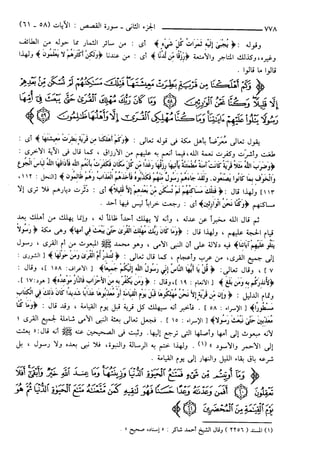 ٧٧٨ الجزء الثانى - سورة القصص : الآيات (٥٨ - ٦١)
وقوله : ﴿ يُجْبَىٰ إِلَيْهِ ثَمَرَاتُ كُلِّ شَيْءٍ ﴾ أى : من سائر الثمار مما حوله من الطائف
وغيره، وكذلك المتاجر والأمتعة ﴿رِزْقًا مِن لَّدُنَّا﴾ أى : من عندنا ﴿وَلَكِنَّ أَكْثَرَهُمْ لا يَعْلَمُونَ﴾ ولهذا
قالوا ما قالوا .
وَكَمْ أَهْلَكْنَا مِن قَرْيَةٍ بَطِرَتْ مَعِيشَتَهَا فَتِلْكَ مَسَاكِنُهُمْ لَمْ تُسْكَن
مِّن بَعْدِهِمْ إِلَّا قَلِيلًا وَكُنَّا نَحْنُ الْوَارِثِينَ ٥٨ وَمَا كَانَ رَبُّكَ مُهْلِكَ
الْقُرَىٰ حَتَّىٰ يَبْعَثَ فِي أُمِّهَا رَسُولًا يَتْلُو عَلَيْهِمْ آيَاتِنَا وَمَا كُنَّا
مُهْلِكِي الْقُرَىٰ إِلَّا وَأَهْلُهَا ظَالِمُونَ ٥٩
يقول تعالى معرضاً بأهل مكة فى قوله تعالى : ﴿وَكَمْ أَهْلَكْنَا مِن قَرْيَةٍ بَطِرَتْ مَعِيشَتَهَا﴾ أى :
طغت وأشرت وكفرت نعمة الله، فيما أنعم به عليهم من الأرزاق ، كما قال فى الآية الأخرى :
﴿وَضَرَبَ اللَّهُ مَثَلاً قَرْيَةً كَانَتْ آمِنَةً مُّطْمَئِنَّةً يَأْتِيهَا رِزْقُهَا رَغَدًا مِّن كُلِّ مَكَانٍ فَكَفَرَتْ بِأَنْعُمِ اللَّهِ فَأَذَاقَهَا اللَّهُ لِبَاسَ الْجُوعِ
وَالْخَوْفِ بِمَا كَانُوا يَصْنَعُونَ. وَلَقَدْ جَاءَهُمْ رَسُولٌ مِّنْهُمْ فَكَذَّبُوهُ فَأَخَذَهُمُ الْعَذَابُ وَهُمْ ظَالِمُونَ﴾ [النحل : ١١٢،
١١٣] ولهذا قال : ﴿فَتِلْكَ مَسَاكِنُهُمْ لَمْ تُسْكَن مِّن بَعْدِهِمْ إِلاَّ قَلِيلاً﴾ أى : دثرت ديارهم فلا ترى إلا
مساكنهم ﴿وَكُنَّا نَحْنُ الْوَارِثِينَ﴾ أى : رجعت خراباً ليس فيها أحد .
ثم قال الله مخبراً عن عدله ، وأنه لا يهلك أحداً ظالماً له ، وإنما يهلك من أهلك بعد
قيام الحجة عليهم ، ولهذا قال : ﴿وَمَا كَانَ رَبُّكَ مُهْلِكَ الْقُرَىٰ حَتَّىٰ يَبْعَثَ فِي أُمِّهَا﴾ وهى مكة ﴿رَسُولاً
يَتْلُو عَلَيْهِمْ آيَاتِنَا﴾ فيه دلالة على أن النبى الأمى ، وهو محمد ﷺ المبعوث من أم القرى ، رسول
إلى جميع القرى، من عرب وأعجام ، كما قال تعالى : ﴿لِتُنذِرَ أُمَّ الْقُرَىٰ وَمَنْ حَوْلَهَا ﴾ [الشورى :
٧] ، وقال تعالى: ﴿ قُلْ يَا أَيُّهَا النَّاسُ إِنِّي رَسُولُ اللَّهِ إِلَيْكُمْ جَمِيعًا﴾ [الأعراف: ١٥٨]، وقال :
﴿لأُنذِرَكُم بِهِ وَمَن بَلَغَ ﴾ [الأنعام : ١٩]،وقال : ﴿وَمَن يَكْفُرْ بِهِ مِنَ الأَحْزَابِ فَالنَّارُ مَوْعِدُهُ﴾ [هود: ١٧].
وتمام الدليل : ﴿وَإِن مِّن قَرْيَةٍ إِلاَّ نَحْنُ مُهْلِكُوهَا قَبْلَ يَوْمِ الْقِيَامَةِ أَوْ مُعَذِّبُوهَا عَذَابًا شَدِيدًا كَانَ ذَلِكَ فِي الْكِتَابِ
مَسْطُورًا﴾ [الإسراء : ٥٨] . فأخبر أنه سيهلك كل قرية قبل يوم القيامة ، وقد قال : ﴿وَمَا كُنَّا
مُعَذِّبِينَ حَتَّىٰ نَبْعَثَ رَسُولاً﴾ [الإسراء : ١٥] . فجعل تعالى بعثة النبى الأمى شاملة لجميع القرى ؛
لأنه مبعوث إلى أمها وأصلها التى ترجع إليها. وثبت فى الصحيحين عنه ﷺ أنه قال:« بعثت
إلى الأحمر والأسود » (١) . ولهذا ختم به الرسالة والنبوة، فلا نبى بعده ولا رسول ، بل
شرعه باق بقاء الليل والنهار إلى يوم القيامة .
وَمَا أُوتِيتُم مِّن شَيْءٍ فَمَتَاعُ الْحَيَاةِ الدُّنْيَا وَزِينَتُهَا وَمَا عِندَ اللَّهِ خَيْرٌ وَأَبْقَىٰ أَفَلَا
تَعْقِلُونَ ٦٠ أَفَمَن وَعَدْنَاهُ وَعْدًا حَسَنًا فَهُوَ لَاقِيهِ كَمَن مَّتَّعْنَاهُ مَتَاعَ الْحَيَاةِ الدُّنْيَا ثُمَّ هُوَ
يَوْمَ الْقِيَامَةِ مِنَ الْمُحْضَرِينَ ٦١
(١) المسند ( ٢٢٥٦) وقال الشيخ أحمد شاكر : « إسناده صحيح » .